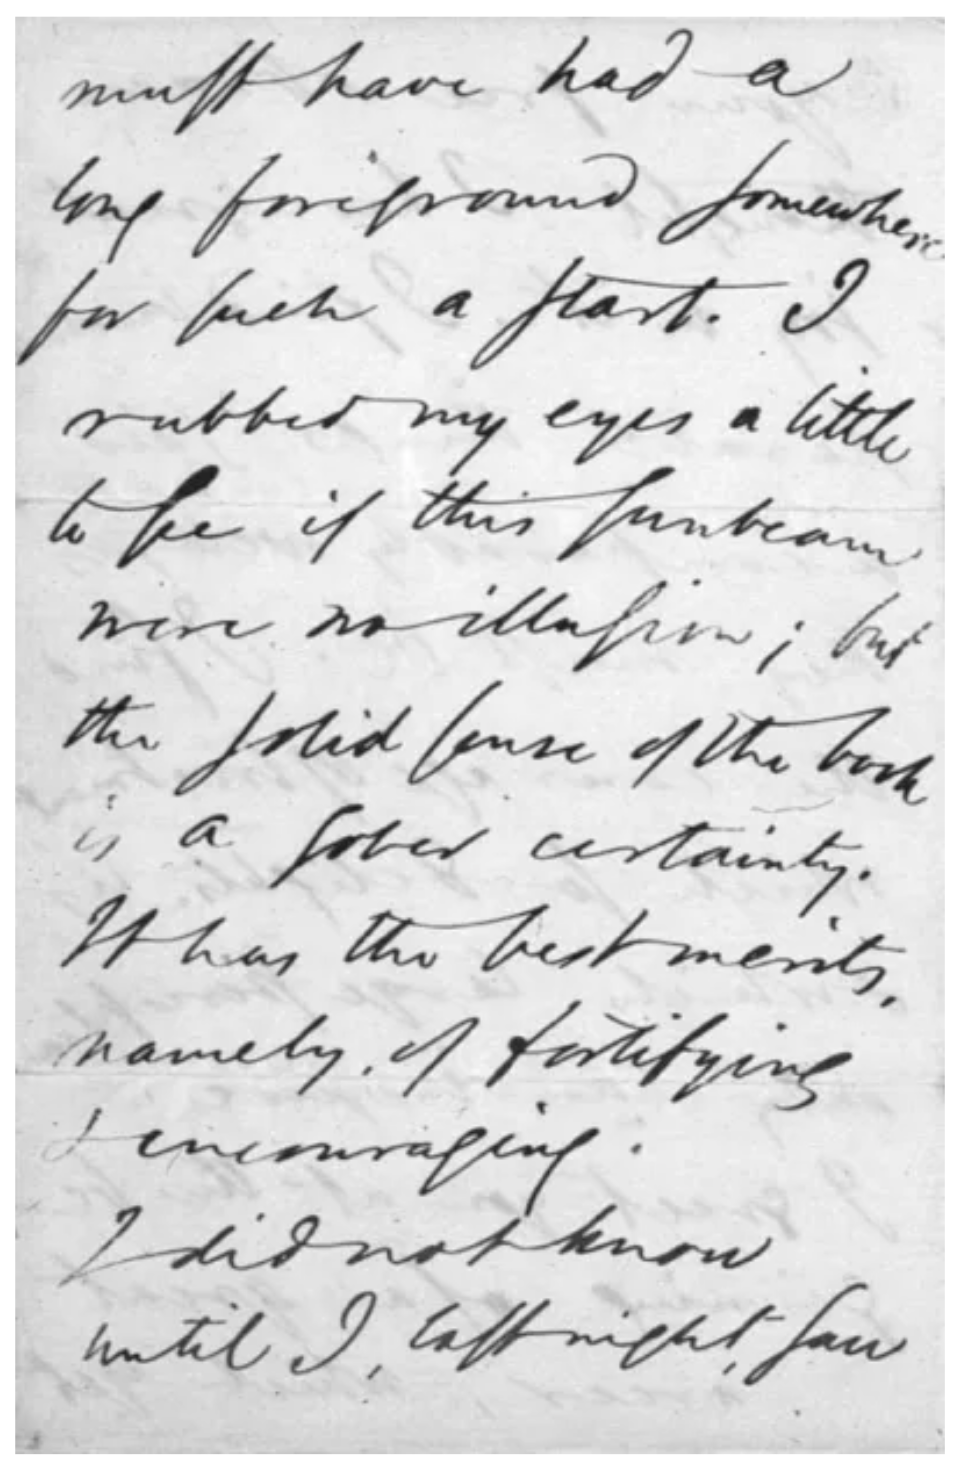 must have had a
long foreground somewhere
for such a start. I
rubbed my eyes a little
to see if this sunbeam
were no illusion; but
the solid sense of the book
is a sober certainty.
It has the best merits,
namely, of fortifying
& encouraging.
I did not know
until I, last night, saw